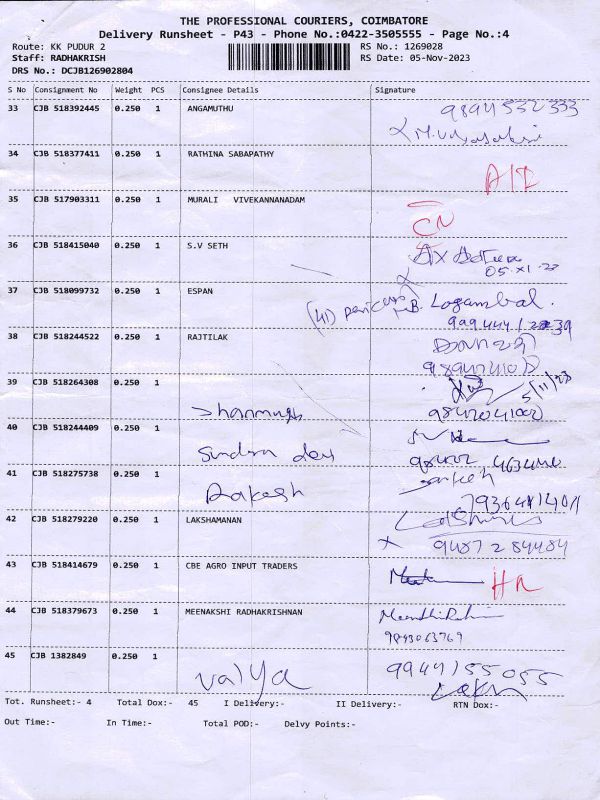 THE PROFESSIONAL COURIERS, COIMBATORE
Delivery Runsheet - P43 - Phone No.:0422-3505555 - Page No.:4
Route: KK PUDUR 2 RS No.: 1269028
Staff: RADHAKRISH RS Date: 05-Nov-2023
DRS No.: DCJB126902804
S No Consignment No Weight PCS Consignee Details Signature
33 CJB 518392445 0.250 1 ANGAMUTHU 9894532333
34 CJB 518377411 0.250 1 RATHINA SABAPATHY
35 CJB 517903311 0.250 1 MURALI VIVEKANNANADAM CN
36 CJB 518415040 0.250 1 S.V SETH
05.XI.23
37 CJB 518099732 0.250 1 ESPAN B. Logambal.
38 CJB 518244522 0.250 1 RAJTILAK
39 CJB 518264308 0.250 1 5/11/23
Shanmuga 9842041000
40 CJB 518244409 0.250 1
Sundra devi
41 CJB 518275738 0.250 1 Rakesh
42 CJB 518279220 0.250 1 LAKSHAMANAN
X 9487284484
43 CJB 518414679 0.250 1 CBE AGRO INPUT TRADERS
44 CJB 518379673 0.250 1 MEENAKSHI RADHAKRISHNAN
9843063769
45 CJB 1382849 0.250 1 Valya 9944155055
Tot. Runsheet:- 4 Total Dox:- 45 I Delivery:- II Delivery:- RTN Dox:-
Out Time:- In Time:- Total POD:- Delvy Points:-